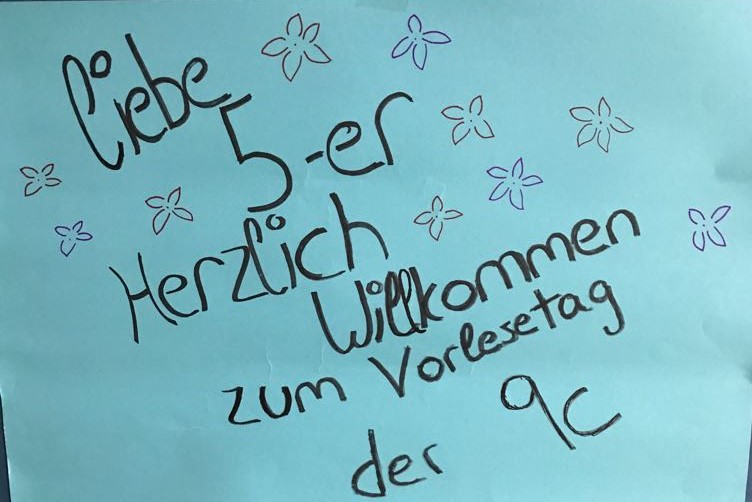 Liebe
5-er
Herzlich
Willkommen
zum Vorlesetag
der 9c